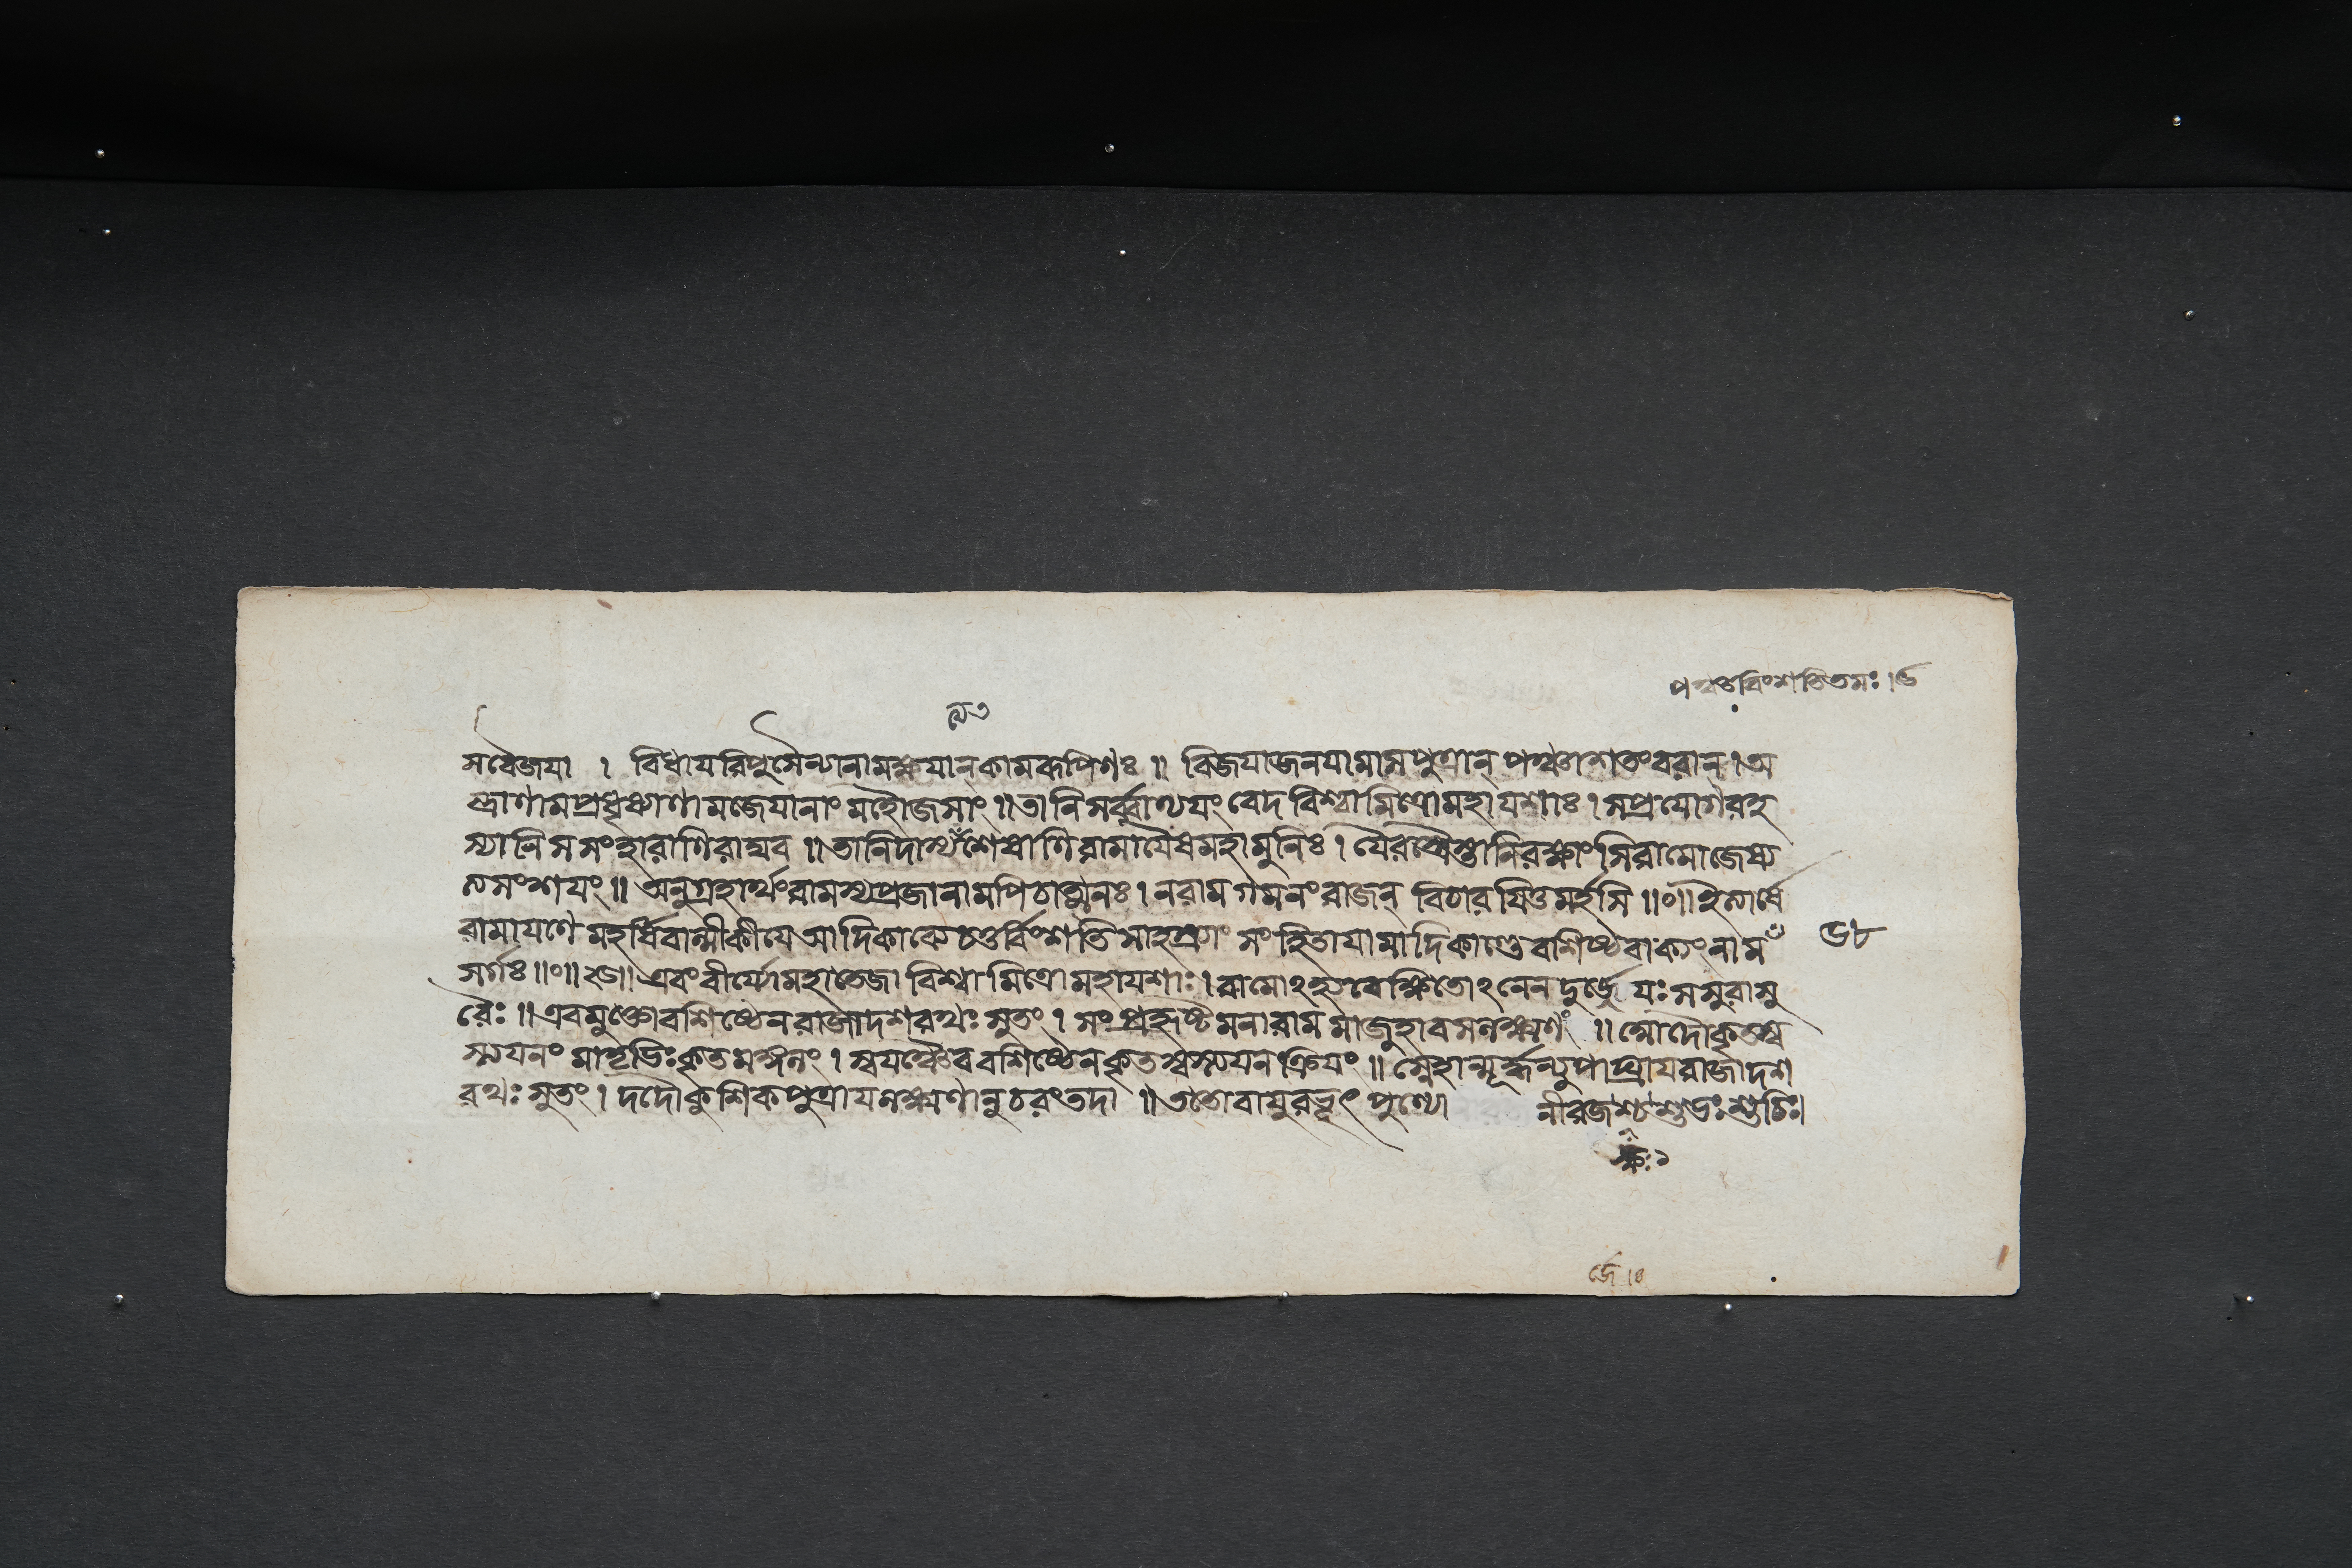 পঞ্চবিংশতিতমঃ।৫
ন্যত
সবৈজয়া । বিধায়রিপুসৈন্যানামক্ষয়ান্কামরূপিণঃ ॥ বিজয়াজনয়ামাসপুত্রান্ পঞ্চাশতংবরান্ । অ
স্ত্রাণামপ্রধৃষ্যাণামজেয়ানাং মহৌজসাং ॥ তানিসর্ব্বাণ্যয়ং বেদ বিশ্বামিত্রোমহাযশাঃ । সপ্রয়োগরহ
স্যানি সসংহারাণিরাঘব ॥ তানিদাস্যত্যশেষাণিরামায়ৈষমহামুনিঃ । যৈরস্ত্রৈস্তানিরক্ষাংসিরামোজেষ্য
ত্যসংশয়ং ॥ অনুগ্রহার্থংরামস্যপ্রজানামপিচাত্মনঃ । নরামগমনংরাজন্ বিচারয়িতুমর্হসি ॥০॥ ইত্যার্ষে
রামায়ণে মহর্ষিবাল্মীকীয়ে আদিকাব্যে চতুর্বিংশতিসাহস্র্যাং সংহিতায়ামাদিকাণ্ডে বশিষ্ঠবাক্যং নাম
৬৮
সর্গঃ ॥০॥ এবংবীর্য্যোমহাতেজা বিশ্বামিত্রোমহাযশাঃ । রামোঽনেন দুর্জ্জেয়ঃ সসুরাসু
রৈঃ ॥ এবমুক্তোবশিষ্ঠেনরাজাদশরথঃ সুতং । সংপ্রহৃষ্টমনারামমাজুহাবসলক্ষ্মণং ॥ কৃতস্ব
স্ত্যয়নং মাতৃভিঃকৃতমঙ্গলং । স্বয়ঞ্চৈববশিষ্ঠেনকৃতস্বস্ত্যয়নক্রিয়ং ॥ স্নেহান্মূর্দ্ধন্যুপাঘ্রায়রাজাদশ
রথঃ সুতং । দদৌকুশিকপুত্রায়লক্ষ্মণানুচরংতদা ॥ ততোবায়ুরভূৎ পুণ্যো নীরজশ্চশুভঃ শুচিঃ।